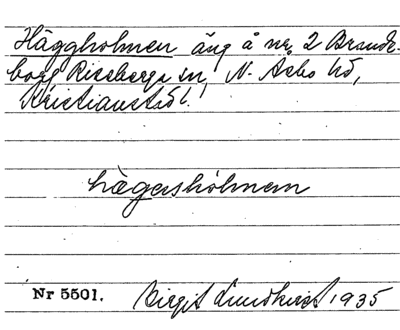 Häggholmen äng å nr 2 Brande-
bogg Riseberga sn, N. Åsbo hd,
Kristianstad l.
hägashólmem
Nr 5501.
Birgit Lundkvist 1935